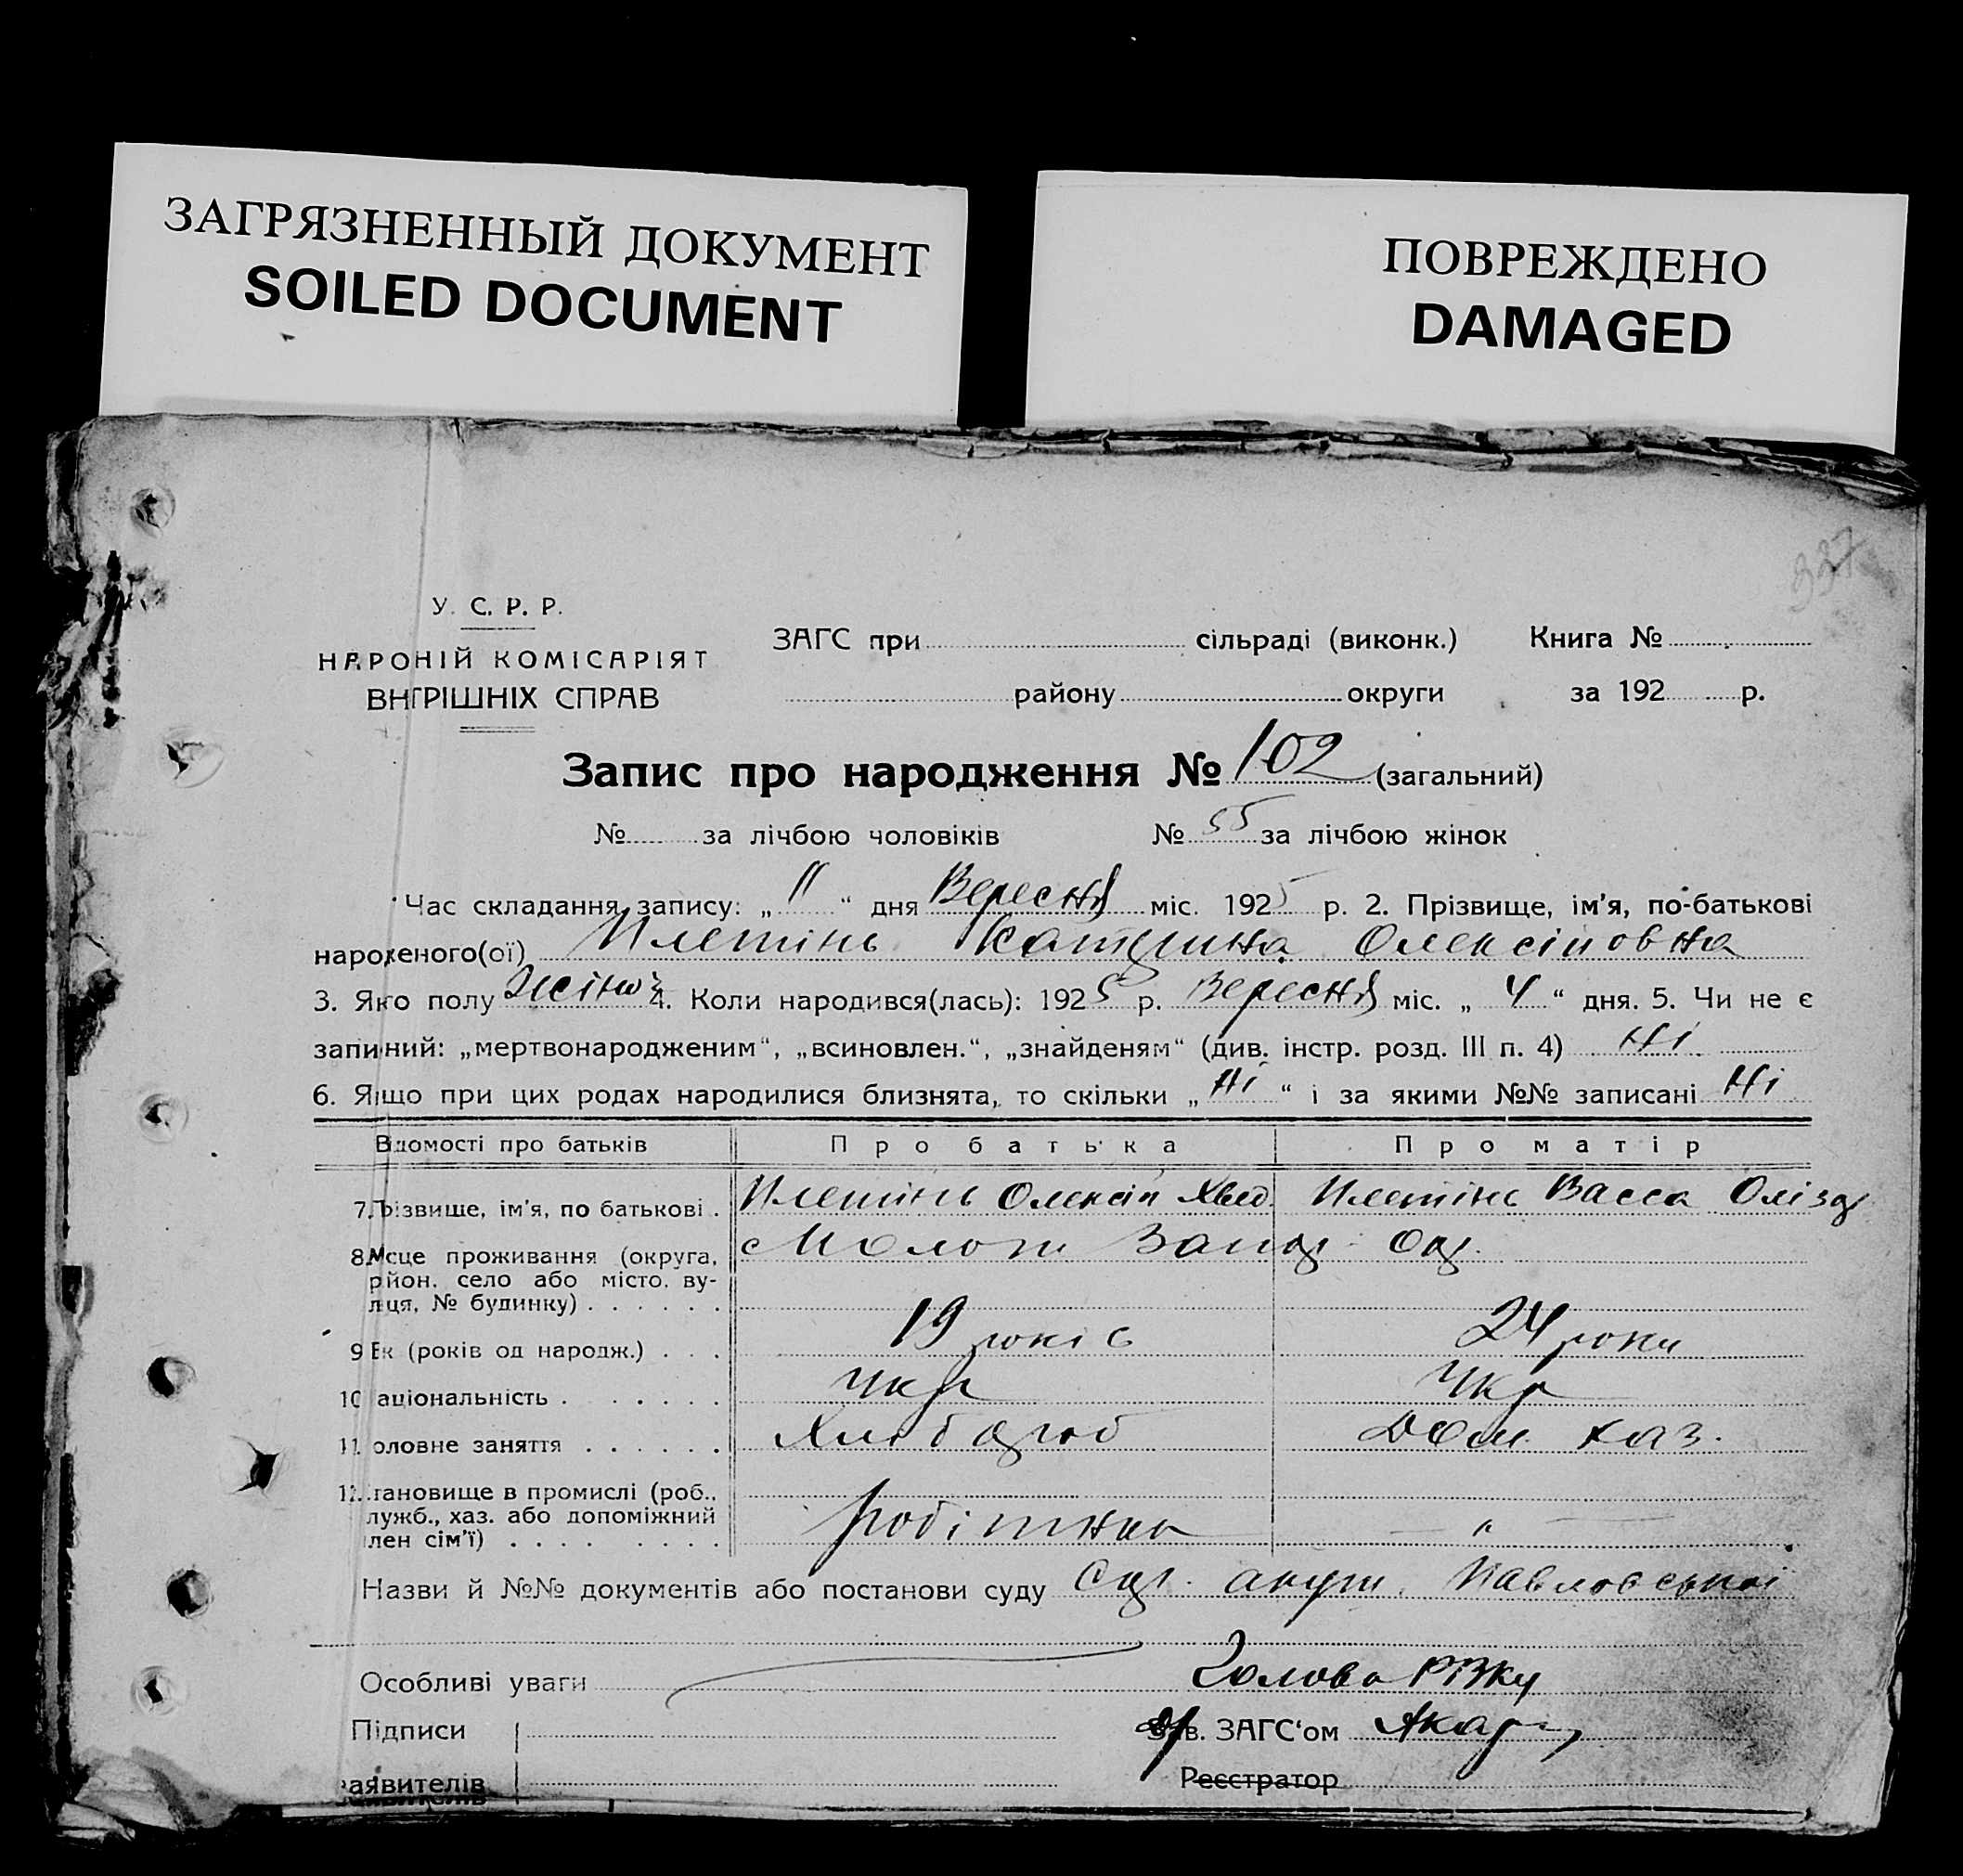 ЗАГРЯЗНЕННЫЙ ДОКУМЕНТ
SOILED DOCUMENT
ПОВРЕЖДЕНО
DAMAGED
337
У. С. Р. Р.
НАРОНІЙ КОМІСАРІЯТ
ВНГРІШНІХ СПРАВ
ЗАГС при сільраді (виконк.) Книга №
району округи за 192 р.
Запис про народження № 102 (загальний)
№ за лічбою чоловіків № 55 за лічбою жінок
Час складання запису: „ 11 “ дня Вересня міс. 1925 р. 2. Прізвище, ім'я, по-батькові
нароженого(ої) Плетінь Катерина Олексіповна
3. Яко полу Жіноч 4. Коли народився(лась): 1925 р. Вересня міс. „ 4 “ дня. 5. Чи не є
запиний: „мертвонародженим“, „всиновлен.“, „знайденям“ (див. інстр. розд. III п. 4) Ні
6. Якщо при цих родах народилися близнята, то скільки „ Ні “ і за якими №№ записані Ні
Відомості про батьків Про батька Про матір
7. Прізвище, ім'я, по батькові . Плетінь Олексіп Хвед. Плетінь Васса Оліза
8. Місце проживання (округа, Молоч Запор Окр.
район, село або місто, ву-
лиця, № будинку)
9 Вік (років од народж.) 19 років 24 роки
10 аціональність Укр Укр
11. оловне заняття Хлібороб Дом. хаз.
12. тановище в промислі (роб.,
лужб., хаз. або допоміжний робітник — „ —
лен сім'ї)
Назви й №№ документів або постанови суду акуш. Павловської
Особливі уваги Голова РВКу
Підписи Зав. ЗАГС‘ом
заявителів Реєстратор